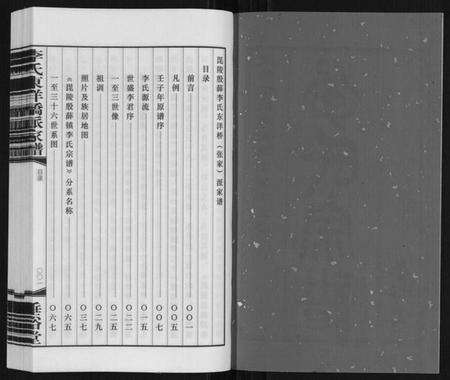 毘陵殷薛李氏东洋桥（张家）派家谱
目录
前言 〇〇一
凡例 〇〇五
壬子年原谱序 〇〇七
李氏源流 〇一五
世盛李君序 〇二二
一至三世像 〇二五
祖训 〇二九
照片及族居地图 〇三七
《毘陵殷薛镇李氏宗谱》分系名称 〇六五
一至三十六世系图 〇六七
目录
〇〇一